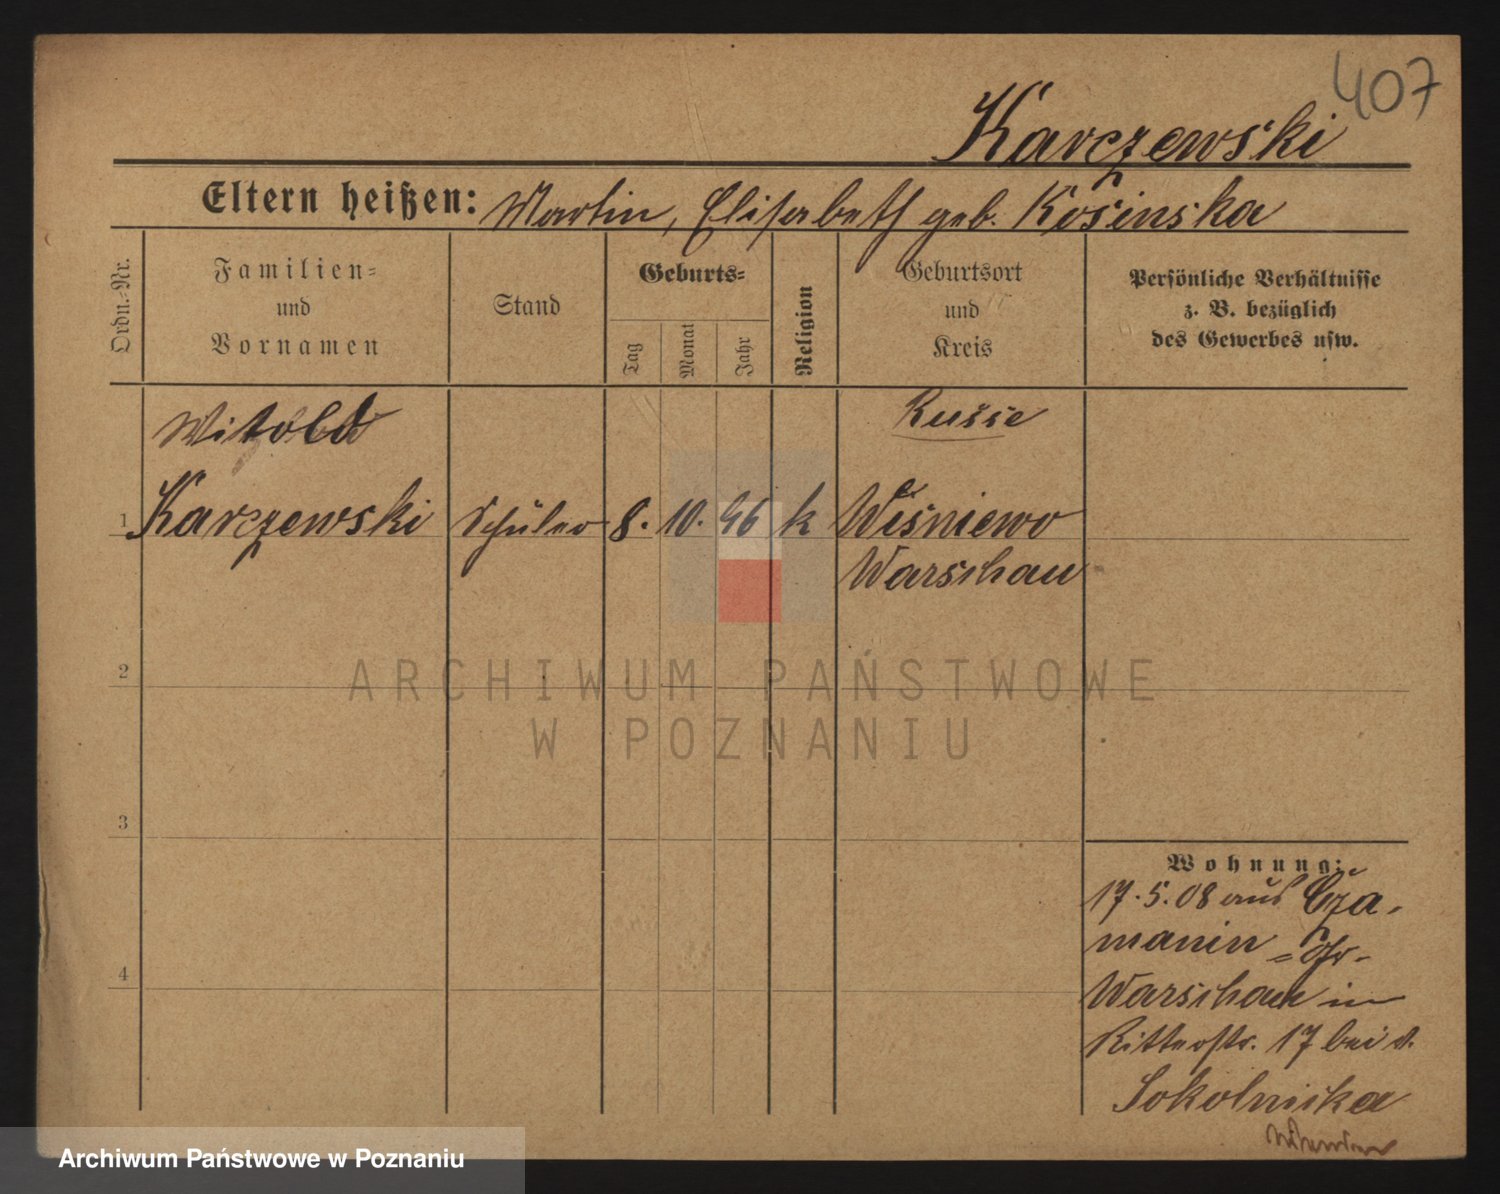 407
Karczewski
Eltern heißen: Martin, Elisabeth geb. Kosinska
Ordn.-Nr.
Familien-
und
Vornamen
Stand
Geburts-
Tag
Monat
Jahr
Religion
Geburtsort
und
Kreis
Persönliche Verhältnisse
z. B. bezüglich
des Gewerbes usw.
Witold
Russe
1 Karczewski Schüler 8. 10. 96 k Wiśniewo
Warschau
2
ARCHIWUM PAŃSTWOWE
W POZNANIU
3
Wohnung:
17.5.08 aus Cza-
manin
4
Warschau in
Ritterstr. 17 bei d.
Sokolnicka
Archiwum Państwowe w Poznaniu